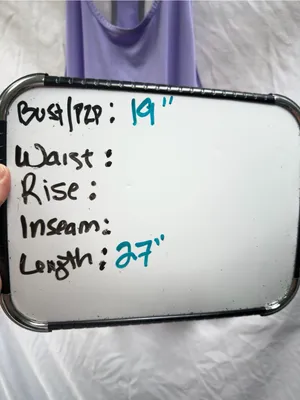 Bust/P2P: 19"
Waist:
Rise:
Inseam:
Length: 27"